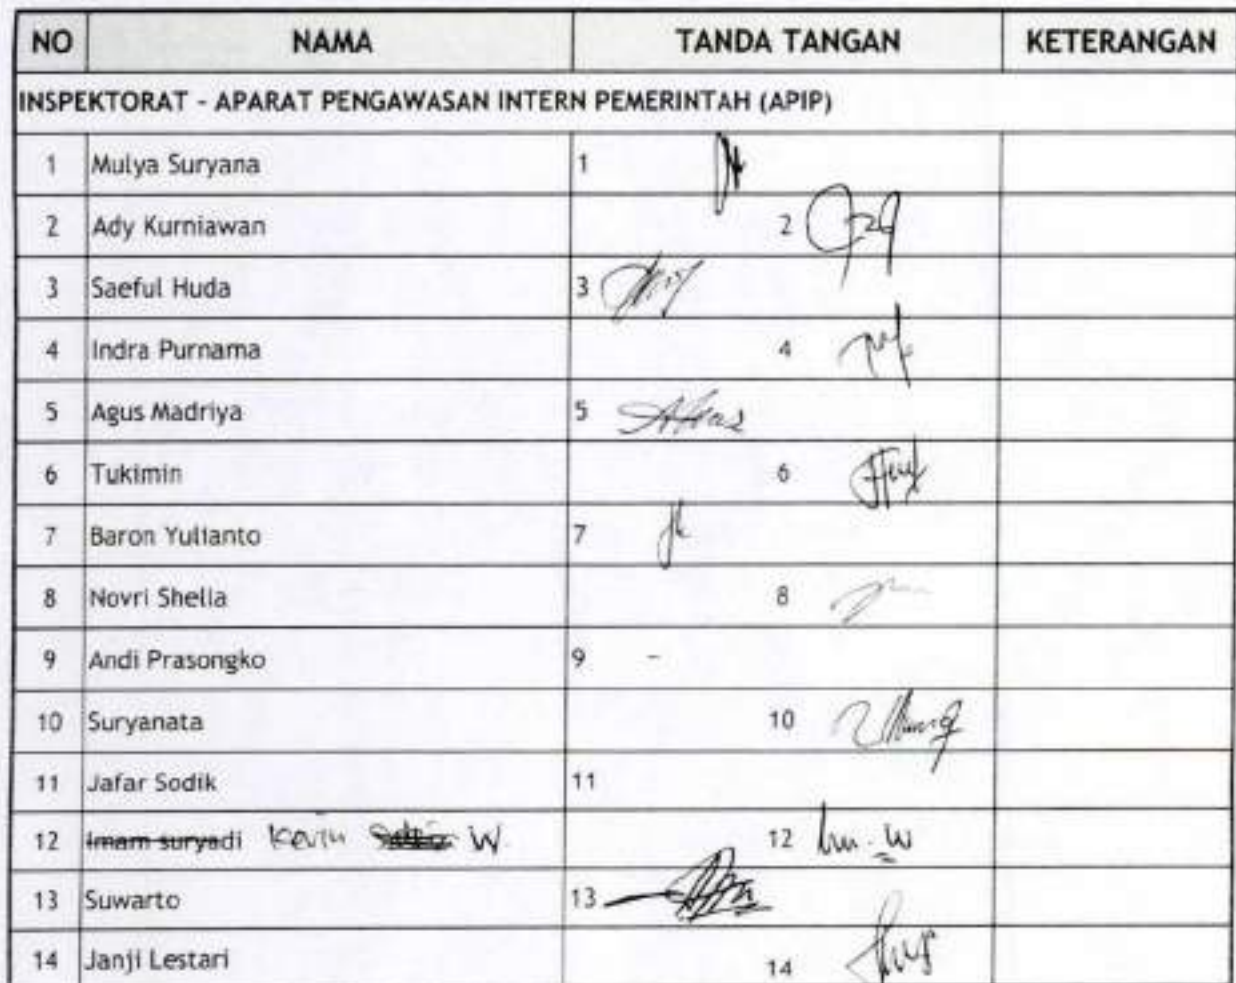 NO NAMA TANDA TANGAN KETERANGAN
INSPEKTORAT - APARAT PENGAWASAN INTERN PEMERINTAH (APIP)
1 Mulya Suryana 1
2 Ady Kurniawan 2
3 Saeful Huda 3
4 Indra Purnama 4
5 Agus Madriya 5
6 Tukimin 6
7 Baron Yulianto 7
8 Novri Shella 8
9 Andi Prasongko 9 -
10 Suryanata 10
11 Jafar Sodik 11
12 Imam suryadi Kevin W. 12
13 Suwarto 13
14 Janji Lestari 14